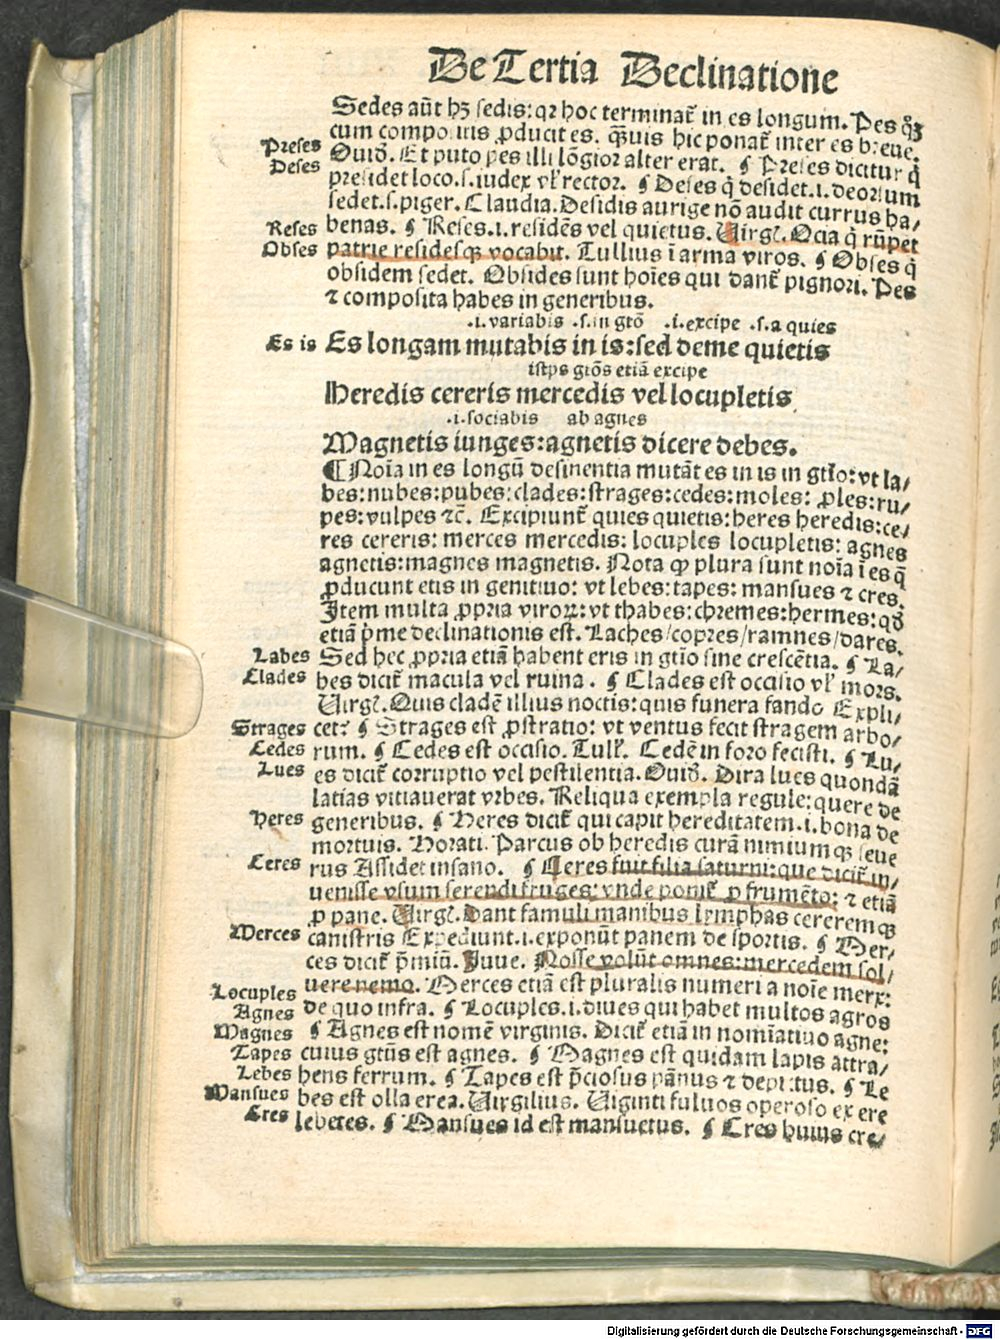 De Tertia Declinatione
Sedes aūt hꝫ sedis: qꝛ hoc terminat̄ in es longum. Pes
cum compositis ꝓducit es. q̄uis hic ponat̄ inter es breue.
Preses Ouid̄. Et puto pes illi lōgior alter erat. ¶ Preses dicitur q̄
Deses presidet loco.s.iudex vl̓ rector. ¶ Deses q̄ desidet.i.deorsum
sedet.s.piger. Claudia. Desidis aurige nō audit currus ha/
Reses benas. ¶ Reses.i.residēs vel quietus. Virgl̓. Ocia q̄ rūpet
Obses patrie residesqꝫ vocabit. Tullius ī arma viros. ¶ Obses q̄
obsidem sedet. Obsides sunt hoīes qui dant̄ pignori. Pes
⁊ composita habes in generibus.
.i. variabis .s.in gtō .i.excipe .s.a quies
Es is Es longam mutabis in is: sed deme quietis
istos gtōs etiā excipe
Heredis cereris mercedis vel locupletis
.i.sociabis ab agnes
Magnetis iunges: agnetis dicere debes.
¶ Noīa in es longū desinentia mutāt es in is in gtīo: vt la/
bes: nubes: pubes: clades: strages: cedes: moles: ꝓles: ru/
pes: vulpes ⁊c̄. Excipiunt̄ quies quietis: heres heredis: ce/
res cereris: merces mercedis: locuples locupletis: agnes
agnetis: magnes magnetis. Nota ꝙ plura sunt noīa ī es q̄
ꝓducunt etis in genitiuo: vt lebes: tapes: mansues ⁊ cres.
Item multa ꝓpria viroꝝ: vt thabes: chremes: hermes: qd̄
etiā p̄me declinationis est. Laches/copres/ramnes/dares.
Labes Sed hec ꝓpria etiā habent eris in gtīo sine crescētia. ¶ La/
Clades bes dicit̄ macula vel ruina. ¶ Clades est occisio vl̓ mors.
Virgl̓. Quis cladē illius noctis: quis funera fando Expli/
Strages cet? ¶ Strages est ꝓstratio: vt ventus fecit stragem arbo/
Cedes rum. ¶ Cedes est occisio. Tull̓. Cedē in foro fecisti. ¶ Lu/
Lues es dicit̄ corruptio vel pestilentia. Ouid̄. Dira lues quondā
latias vitiauerat vrbes. Reliqua exempla regule: quere de
Heres generibus. ¶ Heres dicit̄ qui capit hereditatem.i.bona de
mortuis. Horati. Parcus ob heredis curā nimiumqꝫ seue
Ceres rus Assidet insano. ¶ Ceres fuit filia saturni: que dicit̄ in/
venisse vsum serendi fruges: vnde ponit̄ ꝓ frumēto: ⁊ etiā
ꝓ pane. Virgl̓. Dant famuli manibus lymphas cereremqꝫ
Merces canistris Expediunt.i.exponūt panem de sportis. ¶ Mer/
ces dicit̄ p̄miū. Juue. Nosse volūt omnes: mercedem sol/
uere nemo. Merces etiā est pluralis numeri a noīe merx:
Locuples de quo infra. ¶ Locuples.i.diues qui habet multos agros
Agnes ¶ Agnes est nomē virginis. Dicit̄ etiā in nomīatiuo agne:
Magnes cuius gtūs est agnes. ¶ Magnes est quidam lapis attra/
Tapes hens ferrum. ¶ Tapes est p̄ciosus pānus ⁊ depictus. ¶ Le
Lebes bes est olla erea. Virgilius. Viginti fuluos operoso ex ere
Mansues lebetes. ¶ Mansues id est mansuetus. ¶ Cres huius cre/
Cres
Digitalisierung gefördert durch die Deutsche Forschungsgemeinschaft - DFG